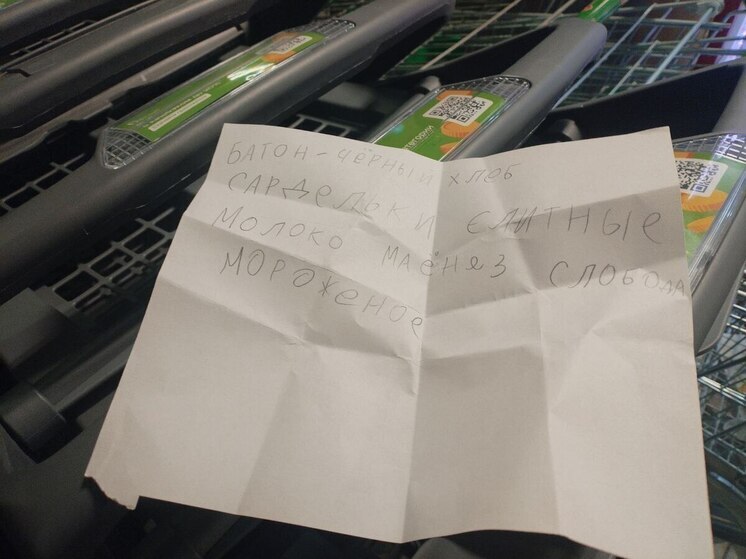 БАТОН - ЧЁРНЫЙ ХЛЕБ
САРДЕЛЬКИ ЕЛИТНЫЕ
МОЛОКО МАЁНЯЗ СЛОБОДА
МОРОЖЕНОЕ